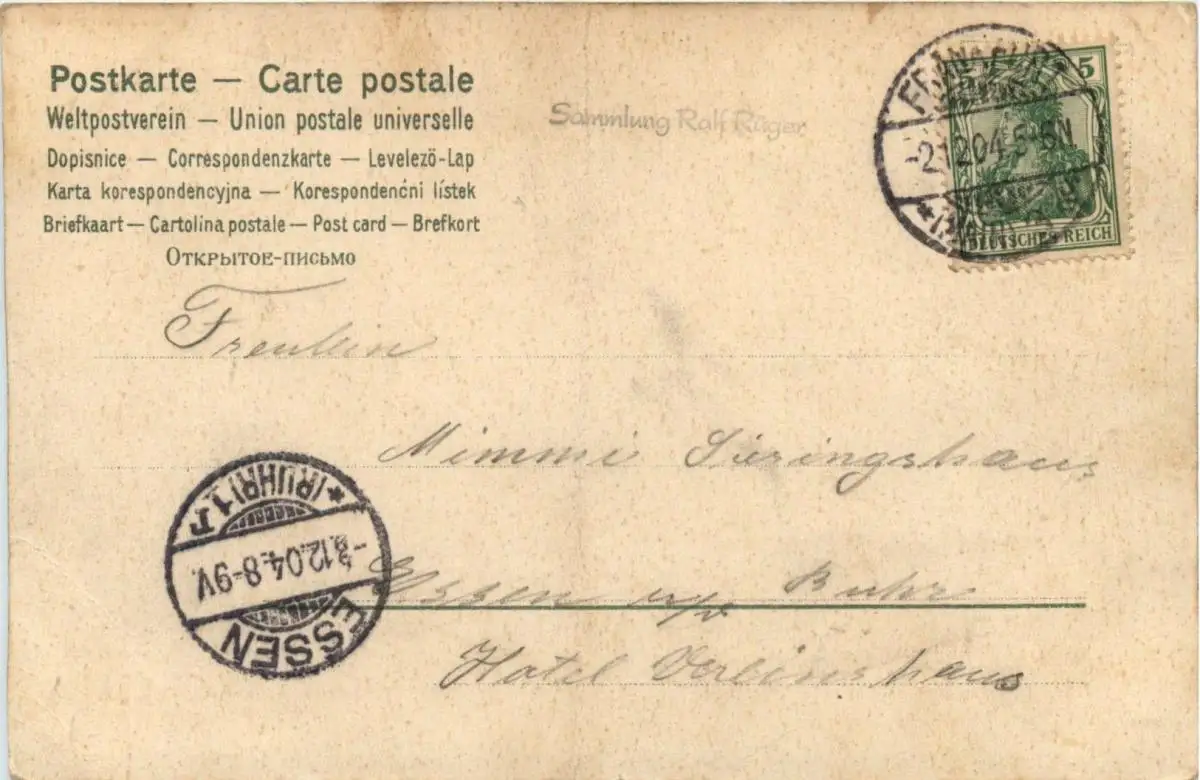 Postkarte — Carte postale
Weltpostverein — Union postale universelle
Dopisnice — Correspondenzkarte — Levelező-Lap
Karta korespondencyjna — Korespondenční lístek
Briefkaart — Cartolina postale — Post card — Brefkort
Открытое-письмо
Sammlung Ralf Rüger
FRANKFURT
-2.12.04. 5-6N
*(MAIN)
5
DEUTSCHES REICH
Freulein
Mimmi Sieringshaus
Essen a/d Ruhr
Hotel Vereinshaus
*(RUHR) 1 r
-3.12.04. 8-9V.
ESSEN